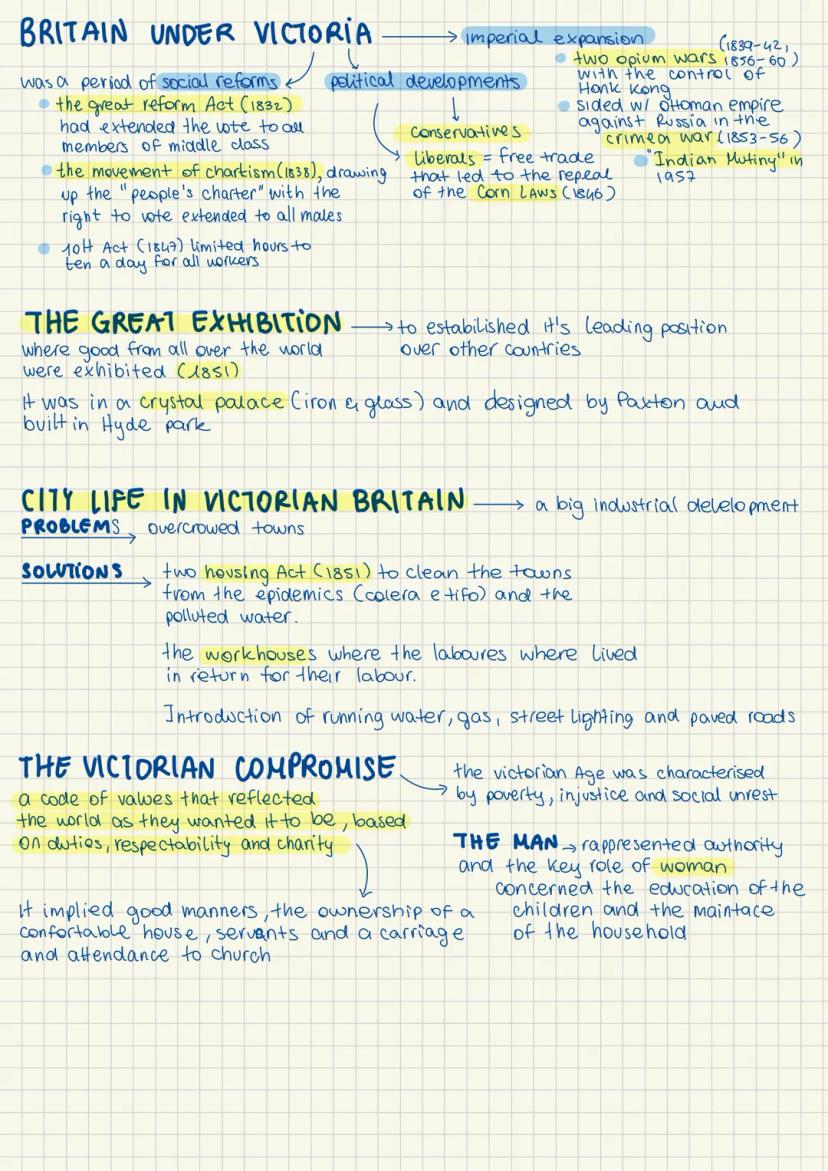 BRITAIN UNDER VICTORIA
imperial expansion
two opium wars (1839-42, 1856-60)
with the control of
Honk Kong
sided w/ ottoman empire
against Russia in the
crimea war (1853-56)
"Indian Mutiny" in
1957
was a period of social reforms
the great reform Act (1832)
had extended the vote to all
members of middle class
the movement of chartism (1838), drawing
up the "people's charter" with the
right to vote extended to all males
10H Act (1847) limited hours to
ten a day for all workers
political developments
conservatives
liberals = free trade
that led to the repeal
of the Corn Laws (1846)
THE GREAT EXHIBITION
to estabilished it's leading position
over other countries
where good from all over the world
were exhibited (1851)
It was in a crystal palace (iron & glass) and designed by Paxton and
built in Hyde park
CITY LIFE IN VICTORIAN BRITAIN
a big industrial development
PROBLEMS overcrowed towns
SOLUTIONS two housing Act (1851) to clean the towns
from the epidemics (colera e tifo) and the
polluted water.
the workhouses where the laboures where lived
in return for their labour.
Introduction of running water, gas, street lighting and paved roads
THE VICTORIAN COMPROMISE
a code of values that reflected
the world as they wanted it to be, based
on duties, respectability and charity
It implied good manners, the ownership of a
confortable house, servants and a carriage
and attendance to church
the victorian Age was characterised
by poverty, injustice and social unrest
THE MAN → rappresented authority
and the key role of woman
concerned the education of the
children and the maintace
of the household